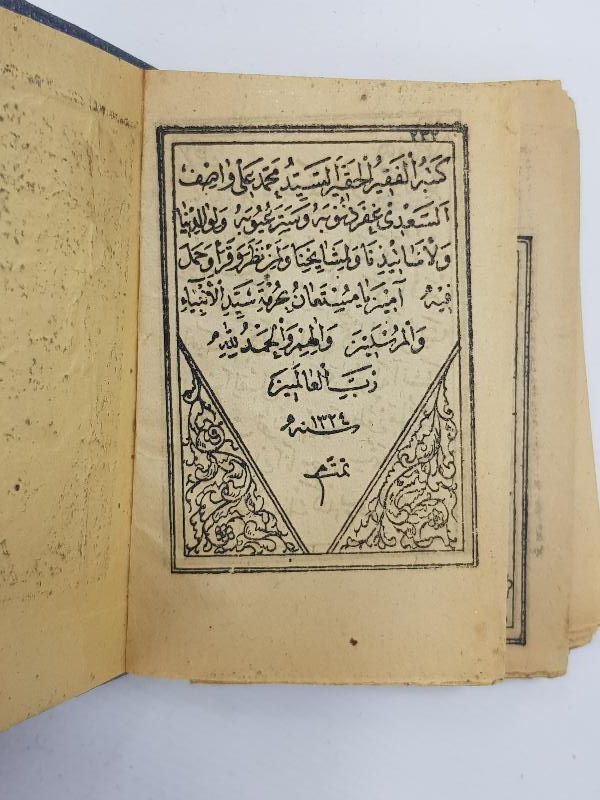 ٢٣٢
كتبه الفقير الحقير السيد محمد على واصف
السعدى غفر ذنوبه وستر عيوبه ولوالدينا
ولأساتيذنا ولمشايخنا ولمن نظر وقرأ وحمل
فيه آمين يا مستعان بحرمة سيد الأنبياء
والمرسلين والهم والحمد لله
رب العالمين
سنه ١٣٢٤
تمت م